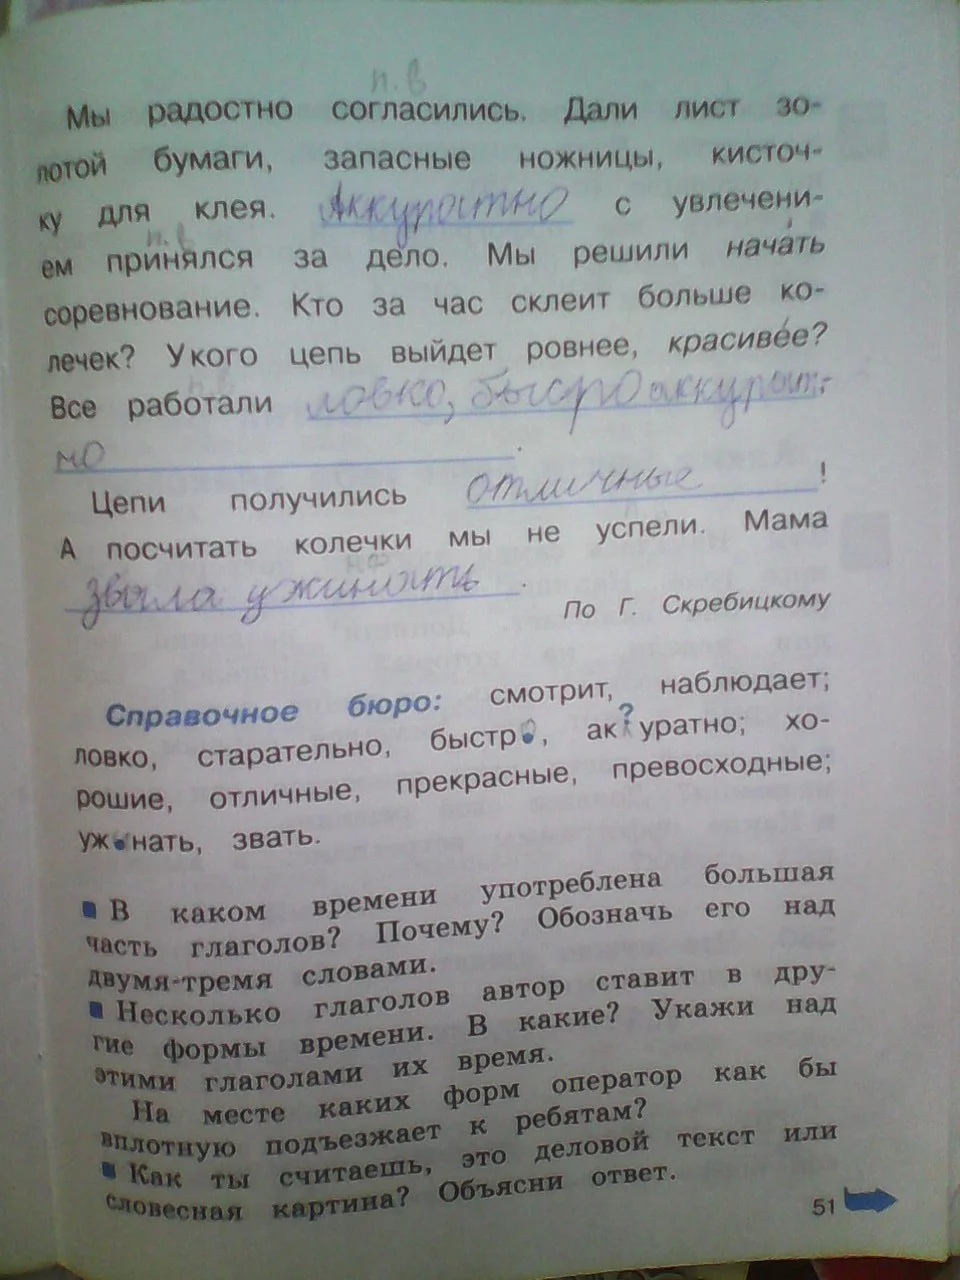 п.в
Мы радостно согласились. Дали лист зо-
лотой бумаги, запасные ножницы, кисточ-
ку для клея. Аккуратно с увлечени-
п.в
ем принялся за дело. Мы решили начать
соревнование. Кто за час склеит больше ко-
лечек? У кого цепь выйдет ровнее, красивее?
Все работали ловко, быстро аккурат-
но .
Цепи получились отличные !
А посчитать колечки мы не успели. Мама
звала ужинать .
По Г. Скребицкому
Справочное бюро: смотрит, наблюдает;
ловко, старательно, быстр , ак?уратно; хо-
рошие, отличные, прекрасные, превосходные;
уж нать, звать.
В каком времени употреблена большая
часть глаголов? Почему? Обозначь его над
двумя-тремя словами.
Несколько глаголов автор ставит в дру-
гие формы времени. В какие? Укажи над
этими глаголами их время.
На месте каких форм оператор как бы
вплотную подъезжает к ребятам?
Как ты считаешь, это деловой текст или
словесная картина? Объясни ответ.
51